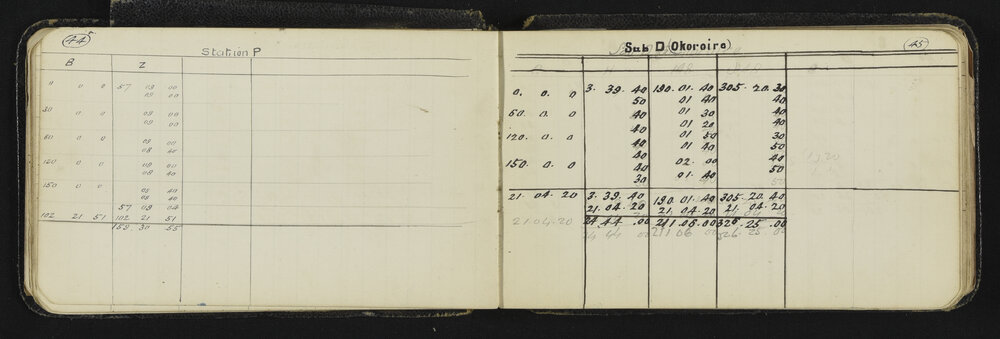 44
Station P
B Z
0 0 0 57 09 00
09 00
30 0 0 09 00
09 00
60 0 0 09 00
08 40
120 0 0 09 00
08 40
150 0 0 09 40
08 40
57 09 04
102 21 51 102 21 51
159 30 55
45
Sub D (Okoroire)
0. 0. 0 3. 39. 40 190. 01. 40 305. 20. 30
50 01 40 40
60. 0. 0 40 01 30 40
40 01 20 40
120. 0. 0 40 01 50 30
40 01 40 50
150. 0. 0 40 02. 00 40
30 01. 40 50
21. 04. 20 3. 39. 40 190. 01. 40 305. 20. 40
21. 04. 20 21. 04. 20 21. 04. 20
21 04.20 24. 44. 00 211. 06. 00 326. 25. 00
24 44 00 211 06 00 326. 25. 00